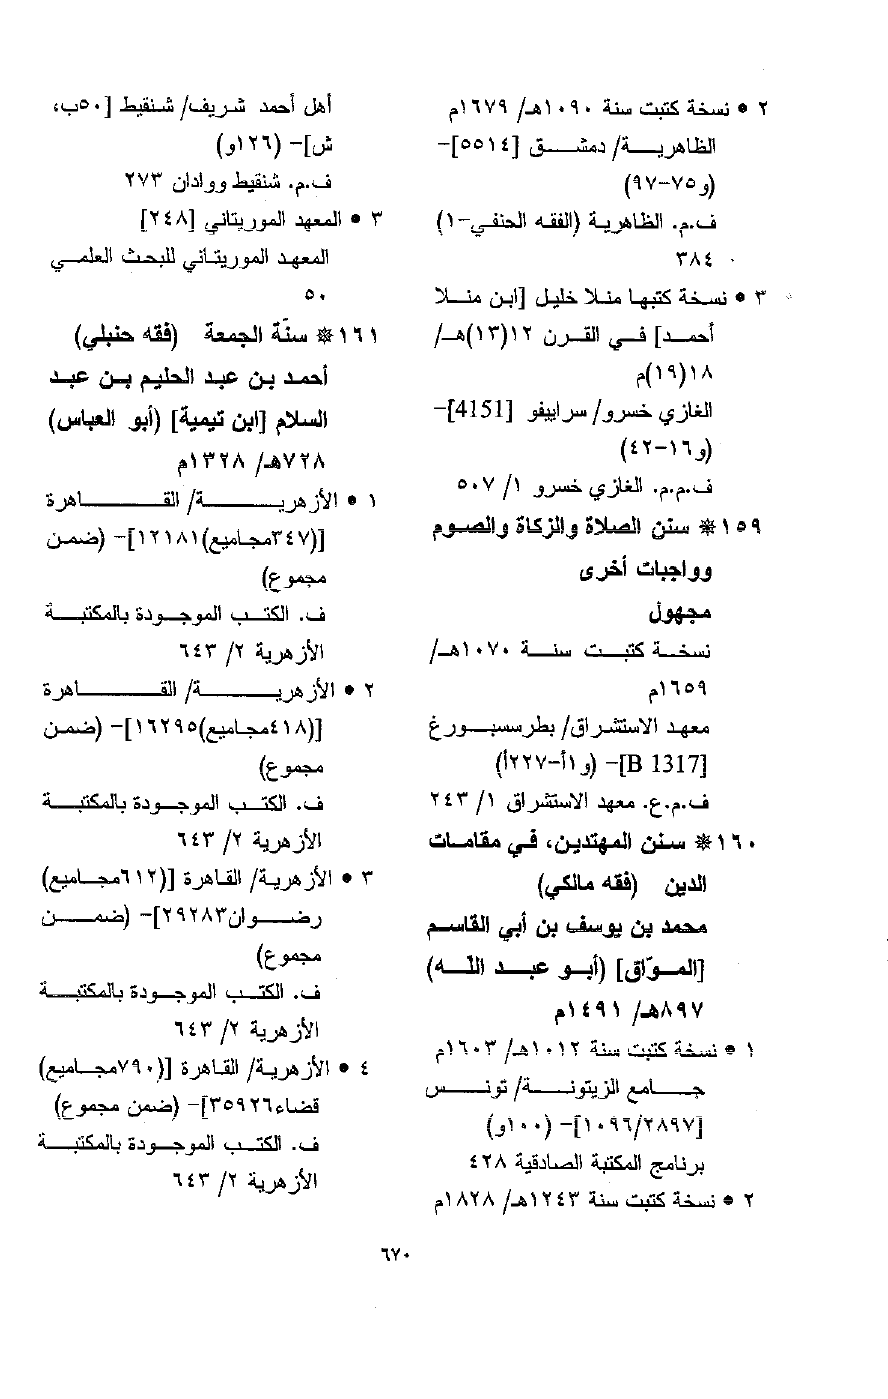 ٢ • نسخة كتبت سنة ١٠٩٠هـ/ ١٦٧٩م
الظاهرية/ دمشق [٥٥١٤]-
(و٧٥-٩٧)
ف.م. الظاهرية (الفقه الحنفي-١)
٣٨٤
٣ • نسخة كتبها منلا خليل [ابن منلا
أحمد] في القرن ١٢(١٣)هـ/
١٨(١٩)م
الغازي خسرو/ سراييفو [4151]-
(و١٦-٤٢)
ف.م.م. الغازي خسرو ١/ ٥٠٧
١٥٩* سنن الصلاة والزكاة والصوم
وواجبات أخرى
مجهول
نسخة كتبت سنة ١٠٧٠هـ/
١٦٥٩م
معهد الاستشراق/ بطرسبورغ
[B 1317]- (و١أ-٢٢٧أ)
ف.م.ع. معهد الاستشراق ١/ ٢٤٣
١٦٠* سنن المهتدين، في مقامات
الدين (فقه مالكي)
محمد بن يوسف بن أبي القاسم
[المواق] (أبو عبد الله)
٨٩٧هـ/ ١٤٩١م
١ • نسخة كتبت سنة ١٠١٢هـ/ ١٦٠٣م
جامع الزيتونة/ تونس
[١٠٩٦/٢٨٩٧]- (١٠٠و)
برنامج المكتبة الصادقية ٤٢٨
٢ • نسخة كتبت سنة ١٢٤٣هـ/ ١٨٢٨م
أهل أحمد شريف/ شنقيط [٥٠ب،
ش]- (١٢٦و)
ف.م. شنقيط ووادان ٢٧٣
٣ • المعهد الموريتاني [٢٤٨]
المعهد الموريتاني للبحث العلمي
٥٠
١٦١* سنّة الجمعة (فقه حنبلي)
أحمد بن عبد الحليم بن عبد
السلام [ابن تيمية] (أبو العباس)
٧٢٨هـ/ ١٣٢٨م
١ • الأزهرية/ القاهرة
[(٣٤٧مجاميع)١٢١٨١]- (ضمن
مجموع)
ف. الكتب الموجودة بالمكتبة
الأزهرية ٢/ ٦٤٣
٢ • الأزهرية/ القاهرة
[(٤١٨مجاميع)١٦٢٩٥]- (ضمن
مجموع)
ف. الكتب الموجودة بالمكتبة
الأزهرية ٢/ ٦٤٣
٣ • الأزهرية/ القاهرة [(٦١٢مجاميع)
رضوان٢٩٢٨٣]- (ضمن
مجموع)
ف. الكتب الموجودة بالمكتبة
الأزهرية ٢/ ٦٤٣
٤ • الأزهرية/ القاهرة [(٧٩٠مجاميع)
قضاء٣٥٩٢٦]- (ضمن مجموع)
ف. الكتب الموجودة بالمكتبة
الأزهرية ٢/ ٦٤٣
٦٧٠